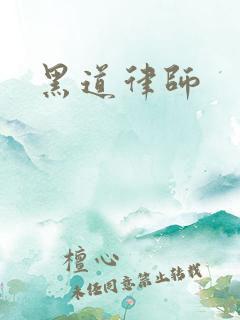 黑道律師
檀心
未经同意禁止转载